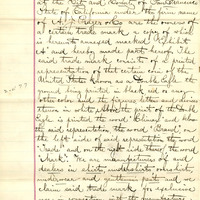 the City and County of San Francisco
State of California under the firm name
of are the owners of
a certain trade mark a copy of which
is hereunto annexed marked "Exhibit
A" and hereby made part hereof. The
said trade mark consists of a printed
representation of that certain coin of the
United States known as a Double Eagle the
ground being printed in black ink or any
other color and the figures, letters and devices
thereon in white. Above the print of the Double
Eagle is printed the word "Celebrated" and below
the said representation the word "Brand", on
the left side of said representation the word
"Trade" and on the right side thereof the word
"Mark". We are manufacturers of and
dealers in shirts,
underwear and and we
claim said trade mark for exclusive
use in connection with the manufacture